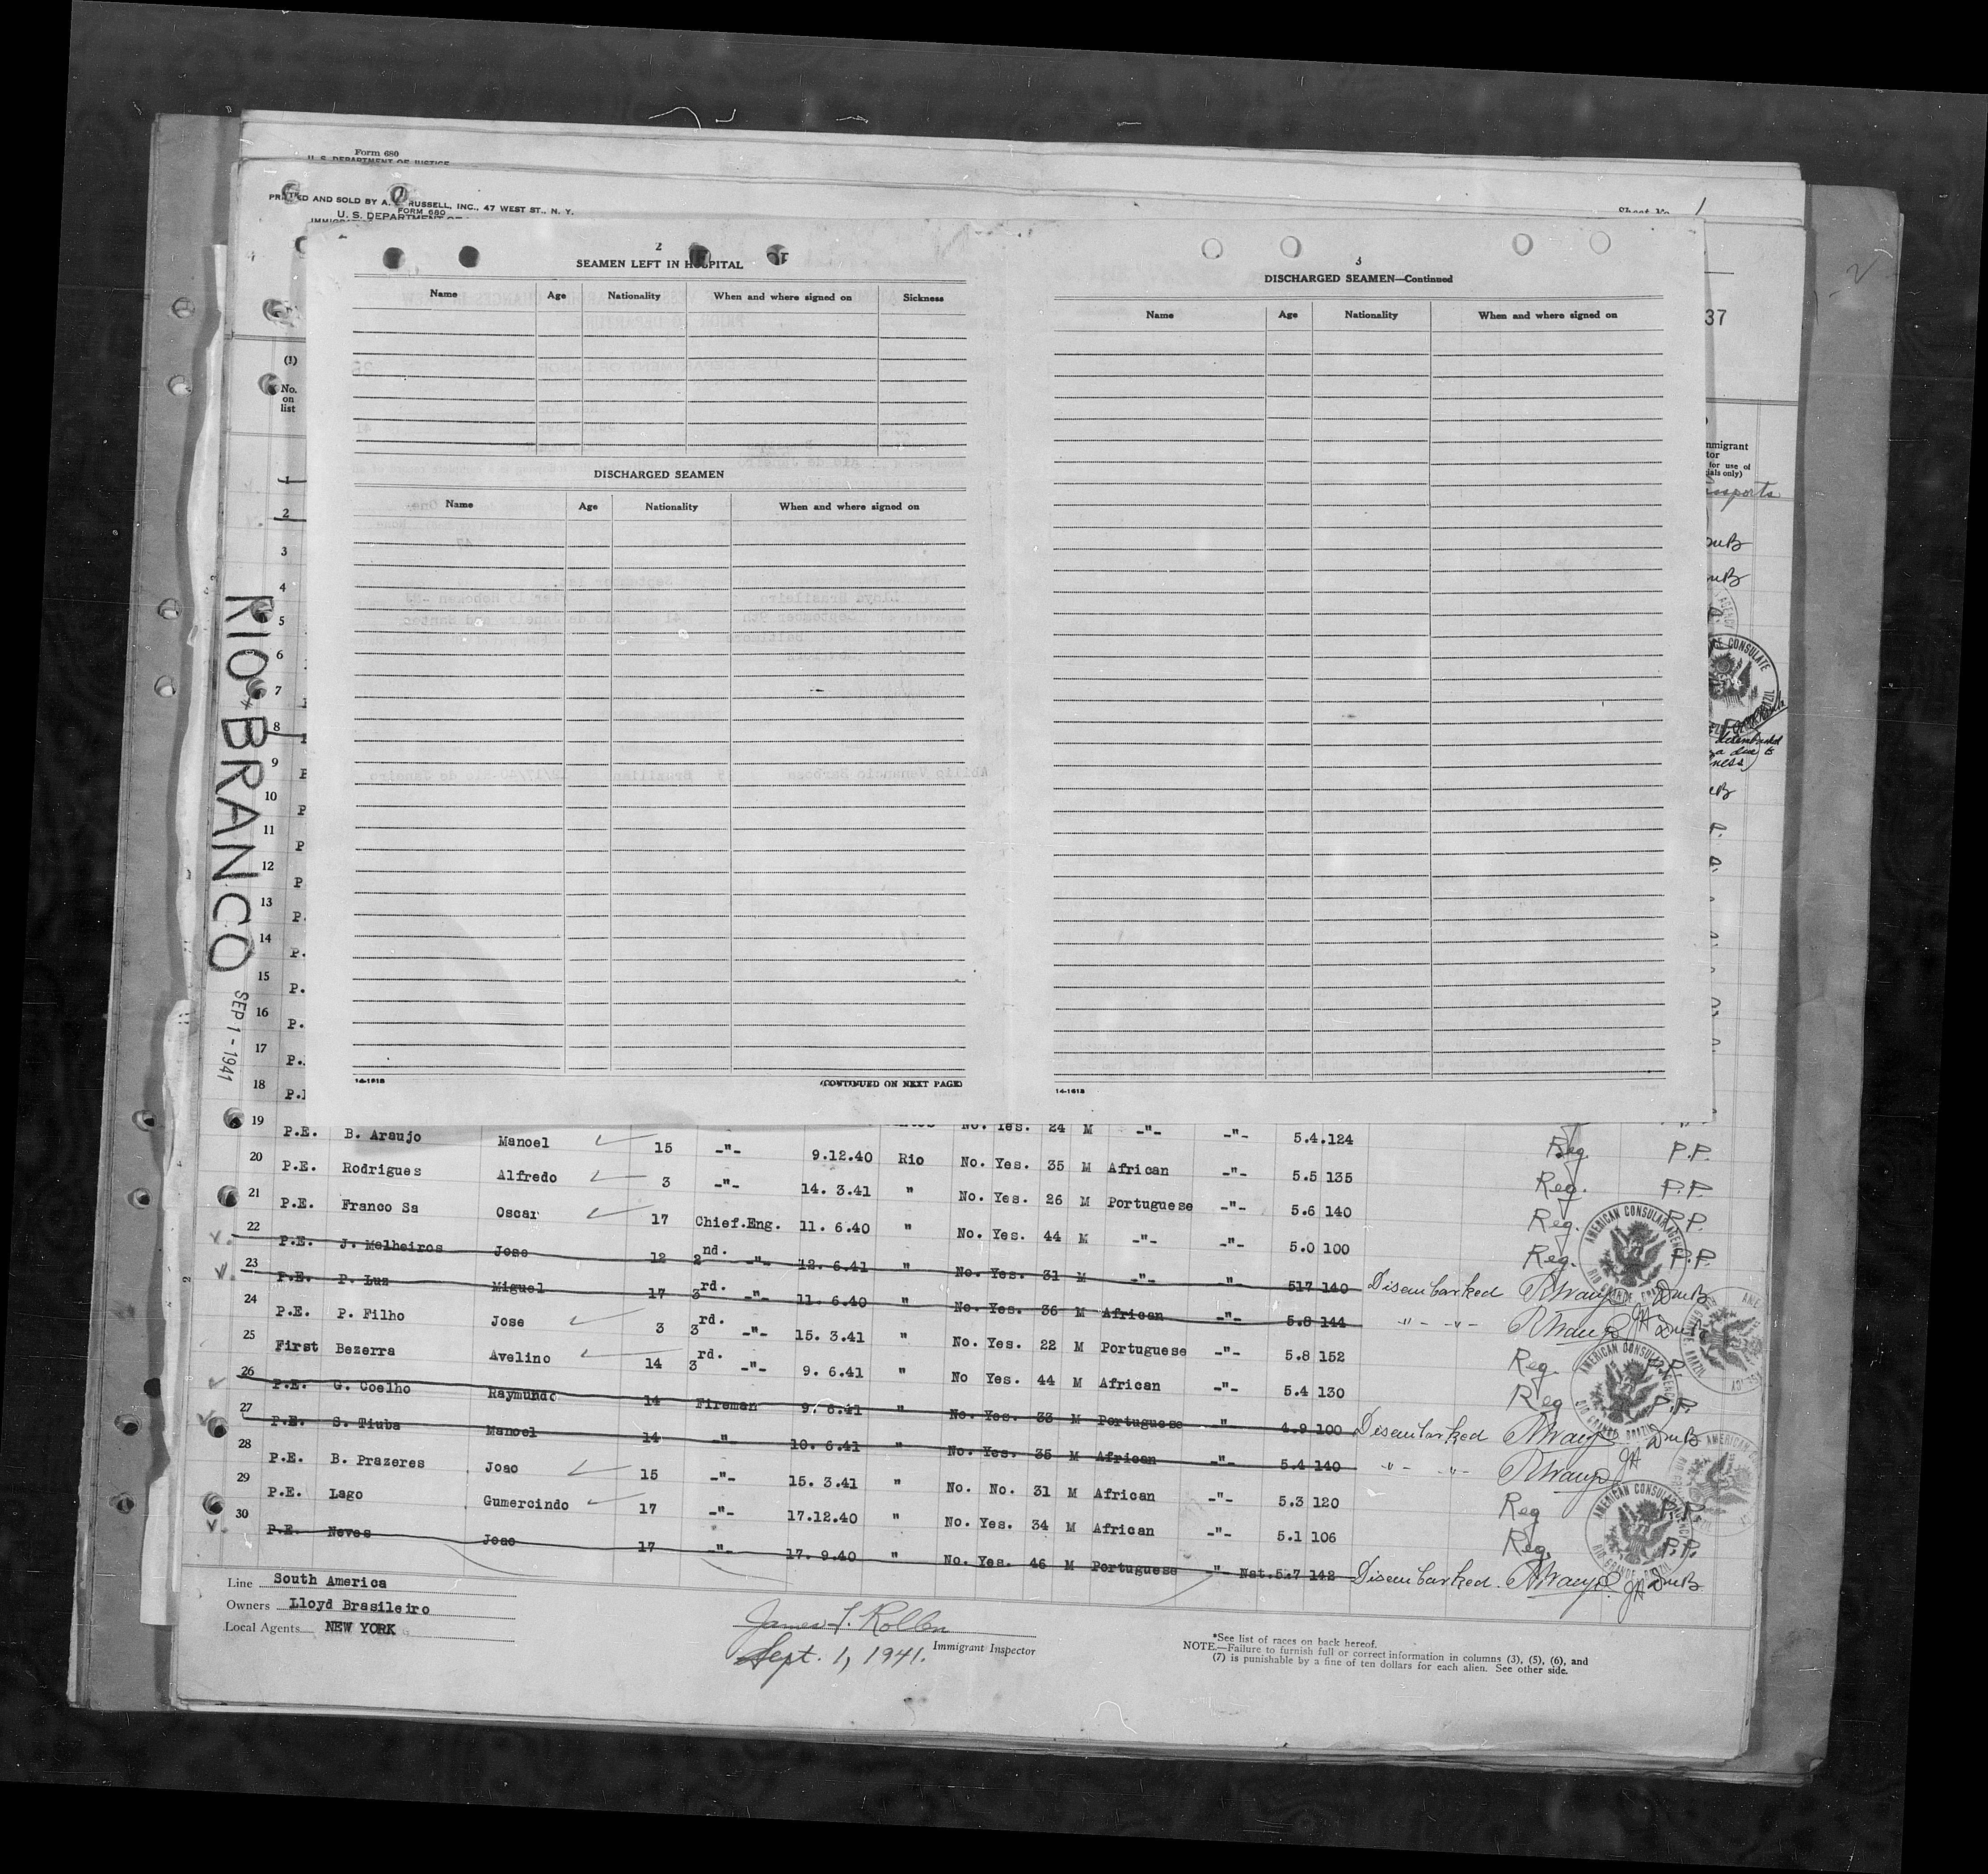 Form 680
U. S. DEPARTMENT OF JUSTICE
RUSSELL, INC., 47 WEST ST., N. Y.
FORM 680
U. S. DEPARTMENT
Sheet No. 1
2
SEAMEN LEFT IN HOSPITAL
Name Age Nationality When and where signed on Sickness
DISCHARGED SEAMEN
Name Age Nationality When and where signed on
14-1618
(CONTINUED ON NEXT PAGE)
3
DISCHARGED SEAMEN—Continued
Name Age Nationality When and where signed on
14-1618
37
(1)
No.
on
list
for use of
RIO BRANCO
SEP 1 - 1941
1
2
3
4
5
6
7
8
9
10
11
12
13
14
15
16
17
18
No. Yes. 24 M -"- -"- 5.4.124
19 P.E. B. Araujo Manoel 15 -"- 9.12.40 Rio No. Yes. 35 M African -"- 5.5 135 Reg. P.P.
20 P.E. Rodrigues Alfredo 3 -"- 14. 3.41 " No. Yes. 26 M Portuguese -"- 5.6 140 Reg. P.P.
21 P.E. Franco Sa Oscar 17 Chief.Eng. 11. 6.40 " No. Yes. 44 M -"- -"- 5.0 100 Reg. P.P.
22 P.E. J. Malheiros Jose 12 2nd. -"- 12. 6.41 " No. Yes. 31 M -"- -"- 517 140 Disembarked
23 P.E. P. Luz Miguel 17 3rd. -"- 11. 6.40 " No. Yes. 36 M African -"- 5.8 144 -"- -"-
24 P.E. P. Filho Jose 3 3rd. -"- 15. 3.41 " No. Yes. 22 M Portuguese -"- 5.8 152 Reg P.P.
25 First Bezerra Avelino 14 3rd. -"- 9. 6.41 " No Yes. 44 M African -"- 5.4 130 Reg P.P.
26 P.E. G. Coelho Raymundo 14 Fireman 9. 6.41 " No. Yes. 33 M Portuguese -"- 4.9 100 Disembarked
27 P.E. S. Tiuba Manoel 14 -"- 10. 6.41 " No. Yes. 35 M African -"- 5.4 140 -"- -"-
28 P.E. B. Prazeres Joao 15 -"- 15. 3.41 " No. No. 31 M African -"- 5.3 120 Reg P.P.
29 P.E. Lago Gumercindo 17 -"- 17.12.40 " No. Yes. 34 M African -"- 5.1 106 Reg. P.P.
30 P.E. Neves Joao 17 -"- 17. 9.40 " No. Yes. 46 M Portuguese -"- Nat.5.7 142 Disembarked.
AMERICAN CONSULAR AGENCY
RIO GRANDE, BRAZIL
Line South America
Owners Lloyd Brasileiro
Local Agents NEW YORK
Sept. 1, 1941.
Immigrant Inspector
*See list of races on back hereof.
NOTE.—Failure to furnish full or correct information in columns (3), (5), (6), and
(7) is punishable by a fine of ten dollars for each alien. See other side.